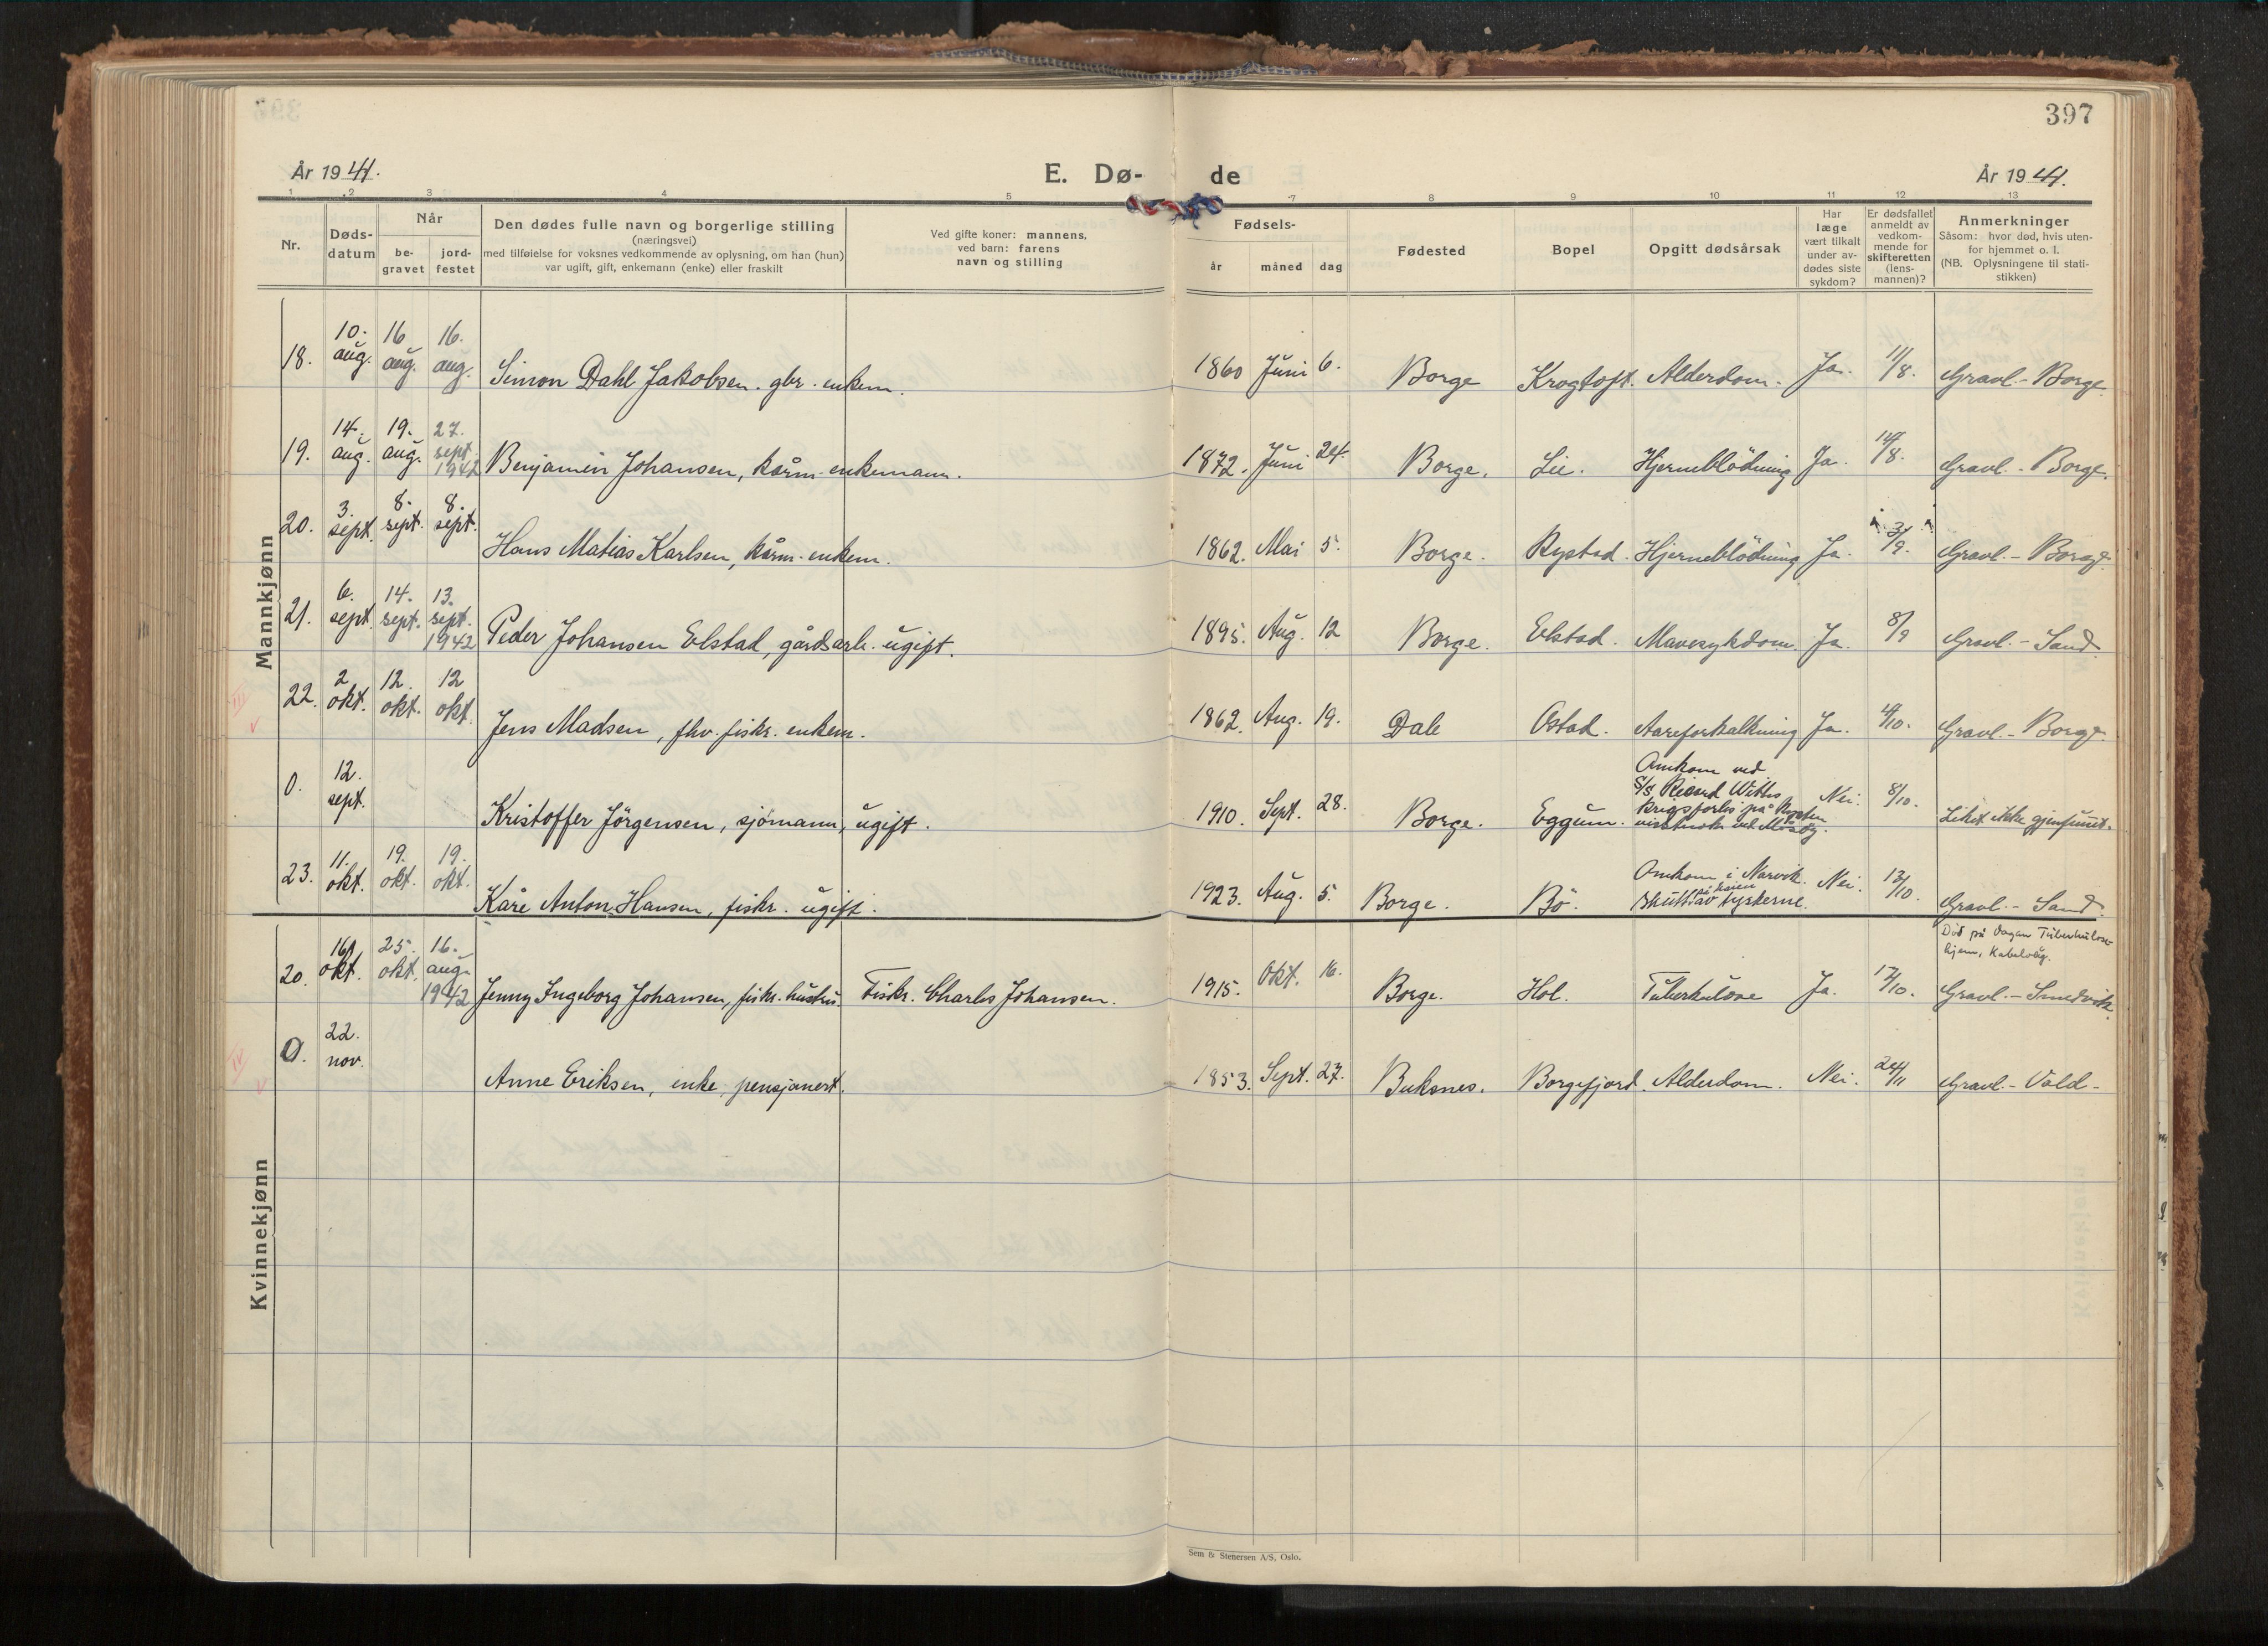 397
År 1941.
E. Dø- de
År 1941.
1 2 3 4 5 7 8 9 10 11 12 13
Nr.
Døds-
datum
Når
be-
gravet
jord-
festet
Den dødes fulle navn og borgerlige stilling
(næringsvei)
med tilføielse for voksnes vedkommende av oplysning, om han (hun)
var ugift, gift, enkemann (enke) eller fraskilt
Ved gifte koner: mannens,
ved barn: farens
navn og stilling
Fødsels-
år måned dag
Fødested
Bopel
Opgitt dødsårsak
Har
læge
vært tilkalt
under av-
dødes siste
sykdom?
Er dødsfallet
anmeldt av
vedkom-
mende for
skifteretten
(lens-
mannen)?
Anmerkninger
Såsom: hvor død, hvis uten-
for hjemmet o. l.
(NB. Oplysningene til stati-
stikken)
Mannkjønn
18. 10. aug. 16 aug. 16. aug. Simon Dahl Jakobsen. gbr. enkem. 1860 Juni 6. Borge Krogtoft. Alderdom. Ja. 11/8. Gravl. - Borge.
19. 14. aug. 19. aug. 27. sept. 1942 Benjamin Johansen, kårm. enkemann. 1872. Juni 24. Borge. Lie. Hjerneblödning Ja. 14/8. Gravl. - Borge.
20. 3. sept. 8. sept. 8. sept. Hans Matias Karlsen, kårm. enkem. 1862. Mai 5. Borge. Rystad. Hjerneblödning Ja. 3/9. Gravl. - Borge.
21. 6. sept. 14. sept. 13. sept. 1942 Peder Johansen Elstad, gårdsarb. ugift. 1895. Aug. 12 Borge. Elstad. Mavesykdom. Ja. 8/9 Gravl. - Sand.
22. 2 okt. 12. okt. 12 okt. Jens Madsen, fhv. fiskr. enkem. 1862. Aug. 19. Dale Ostad. Aareforkalkning Ja. 4/10. Gravl. - Borge.
0. 12. sept. Kristoffer Jörgensen, sjömann, ugift. 1910. Sept. 28. Borge. Eggum. Omkom ved
S/S Richard Withs
krigsforlis på Kysten
Nei. 8/10. Liket ikke gjenfunnet.
23. 11. okt. 19. okt. 19. okt. Kåre Anton Hansen, fiskr. ugift. 1923. Aug. 5. Borge. Bö. Omkom i Narvik.
på kaien
skutt av tyskerne. Nei. 13/10. Gravl. - Sand.
Kvinnekjønn
20. 16. okt. 25. okt. 16. aug. 1942 Jenny Ingeborg Johansen, fiskr. hustru. Fiskr. Charles Johansen. 1915. Okt. 16. Borge. Hol. Tuberkulose Ja. 17/10. Död på Vågan Tuberkulose-
hjem, Kabelvåg.
Gravl. - Smedvik.
0. 22. nov. Anne Eriksen, enke, pensjonert. 1853. Sept. 27. Buksnes. Borgefjord. Alderdom. Nei. 24/11 Gravl. - Vold -
Sem & Stenersen A/S, Oslo.